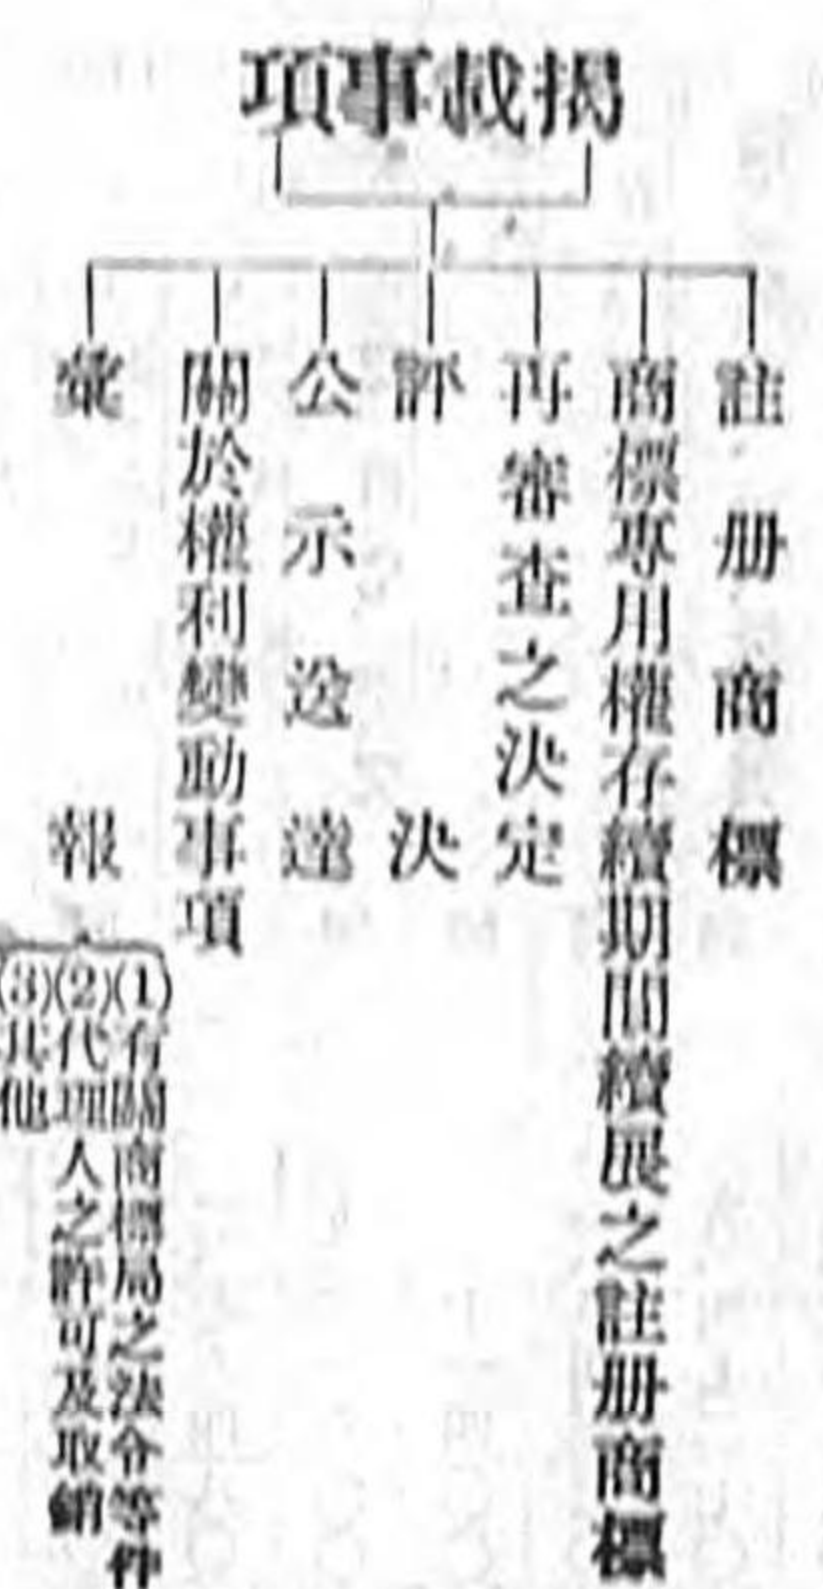 揭載事項
註册商標
商標專用權存續期間續展之註册商標
再審查之決定
評決
公示送達
關於權利變動事項
彙報
(1)有關商標局之法令等件
(2)代理人之許可及取銷
(3)其他